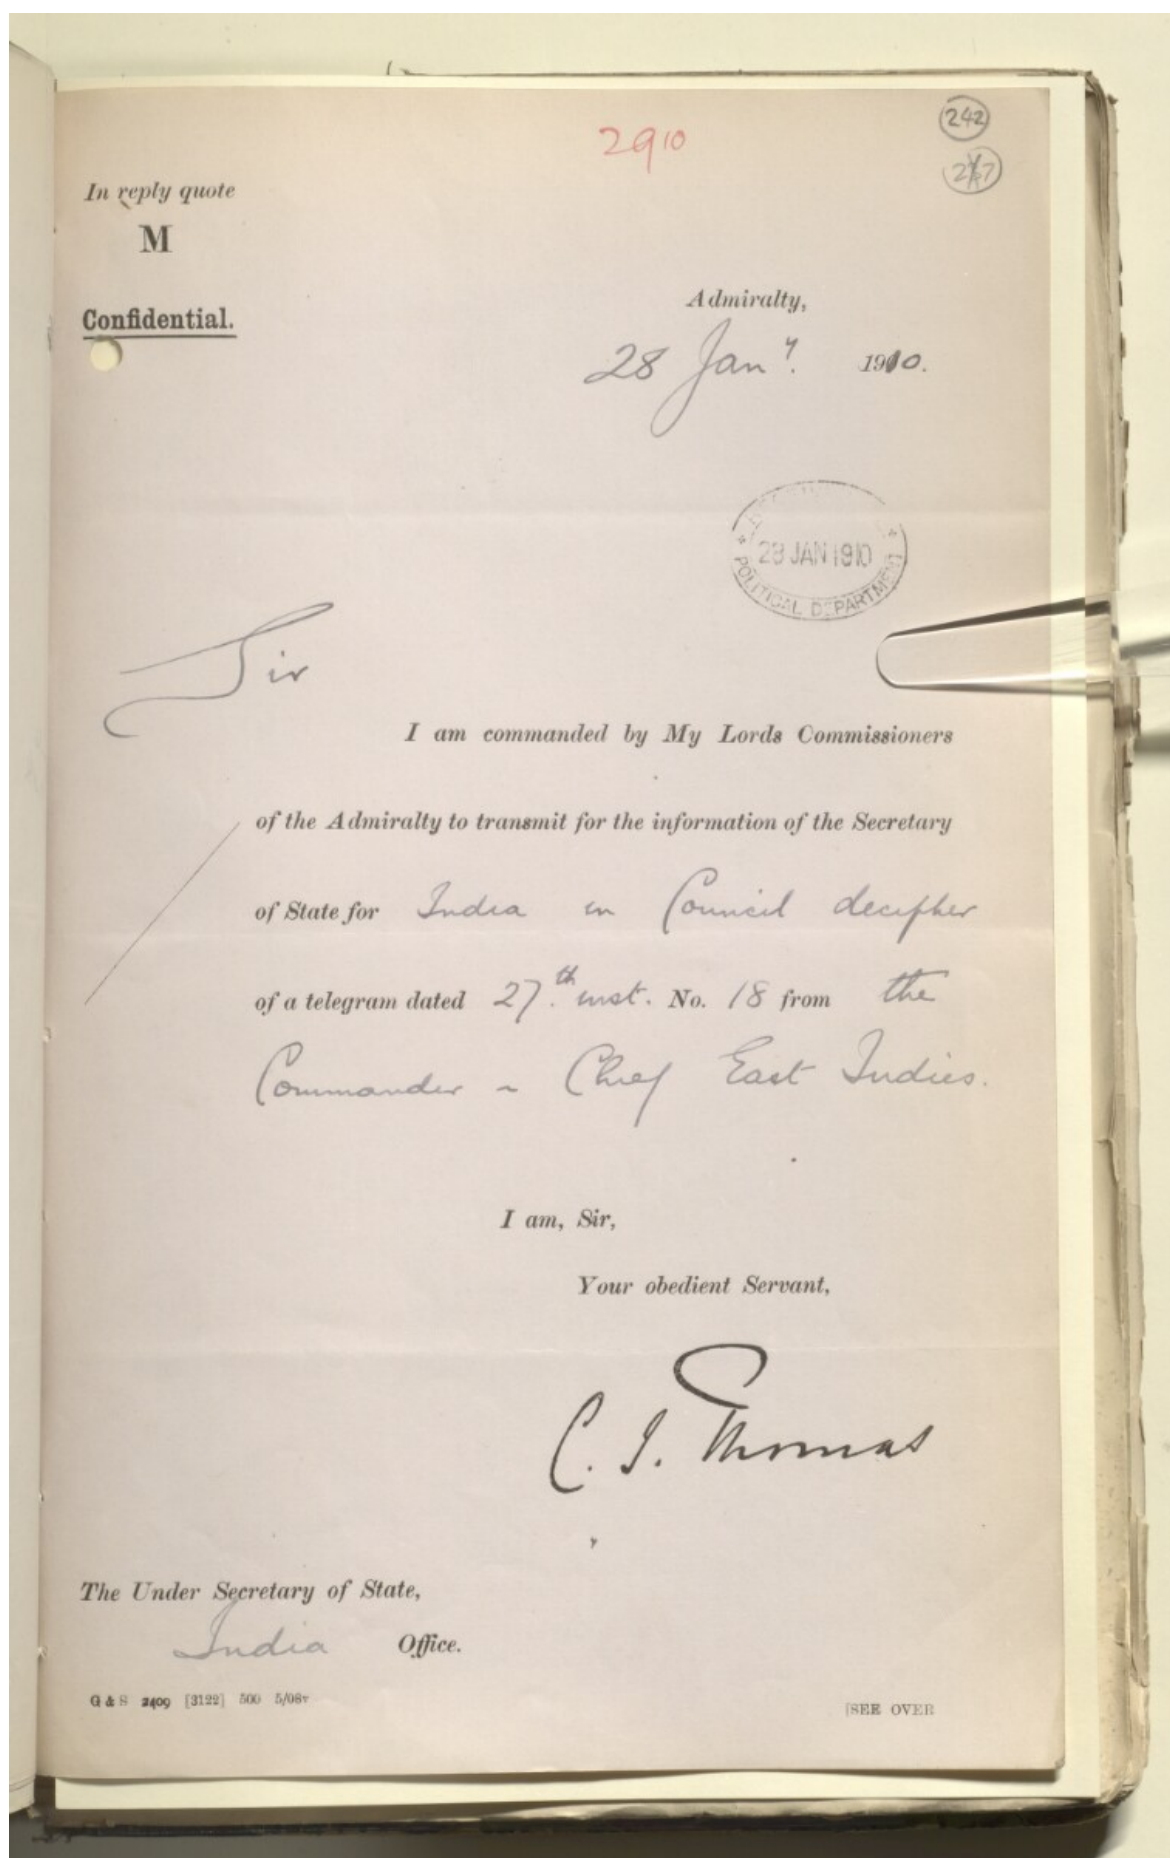 2910
242
In reply quote
M
Confidential.
Admiralty,
28 Jany. 1910.
28 JAN 1910
POLITICAL DEPARTMENT
Sir
I am commanded by My Lords Commissioners
of the Admiralty to transmit for the information of the Secretary
of State for India in Council decipher
of a telegram dated 27th. inst. No. 18 from the
Commander - Chief East Indies.
I am, Sir,
Your obedient Servant,
C. I. Thomas
The Under Secretary of State,
India Office.
G & S 2409 [3122] 500 5/08
[SEE OVER